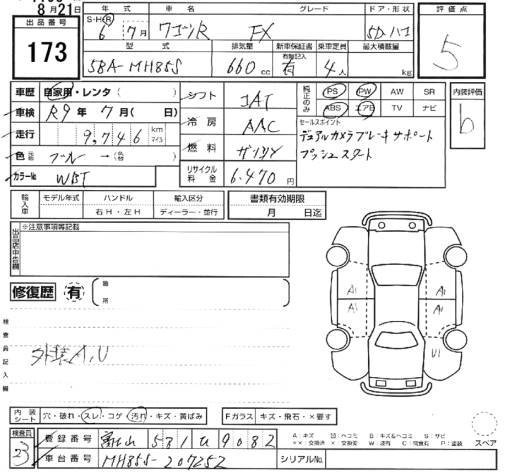 8月21日
出品番号
173
年式 車名 グレード ドア・形状
S・H・R 6 7月 ワゴンR FX 5D ハコ
型式 排気量 新車保証書 乗車定員 最大積載量
有無記入
5BA-MH85S 660cc 有 4人 kg
評価点
5
車歴 自家用・レンタ( )
車検 R9年7月( 日)
走行 9,746 km マイル
色
カラーNo WBT
シフト IAT
冷房 AAC
燃料 ガソリン
リサイクル料金 6,470円
純正のみ PS PW AW SR
ABS エアB TV ナビ
セールスポイント
デュアルカメラブレーキサポート
プッシュスタート
内装評価
b
輸入車 モデル年式 ハンドル 輸入区分
右H・左H ディーラー・並行
書類有効期限
月 日迄
※注意事項等記載
修復歴 有
箇所
検査員記入欄
外装A,U
A1 A1
A1 A1
U1
内装シート 穴・破れ・スレ・コゲ・汚れ・キズ・黄ばみ
Fガラス キズ・飛石・×要す
検査員
登録番号 581 9082
車台番号 MH85S-207252
シリアルNo.
スペア